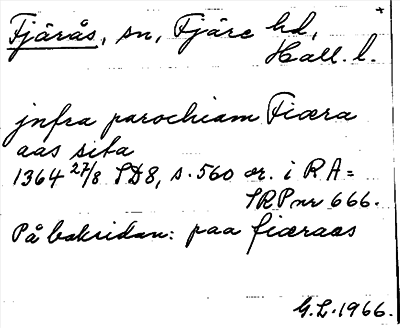 +
Fjärås, sn, Fjäre hd,
Hall. l.
jnfra parochiam Fiæra
aas sita
1364 27/8 SD8, s. 560 or. i RA =
SRP nr 666.
På baksidan: paa fiæraas
G.L. 1966.